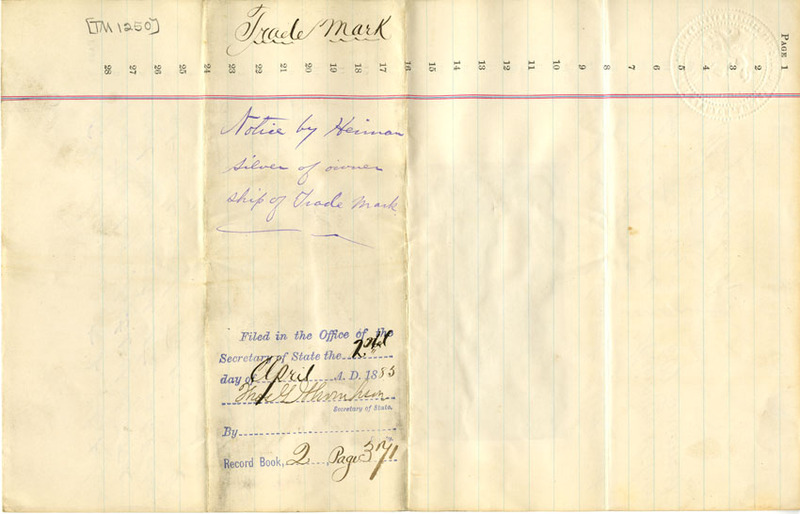 [TM 1250]
Trade Mark
PAGE 1
2
3
4
5
6
7
8
9
10
11
12
13
14
15
16
17
18
19
20
21
22
23
24
25
26
27
28
Notice by Heiman
silver of owner
ship of Trade Mark
Filed in the Office of the
Secretary of State the 2nd
day of April A. D. 1883
Secretary of State.
By
Record Book, 2, Page 371